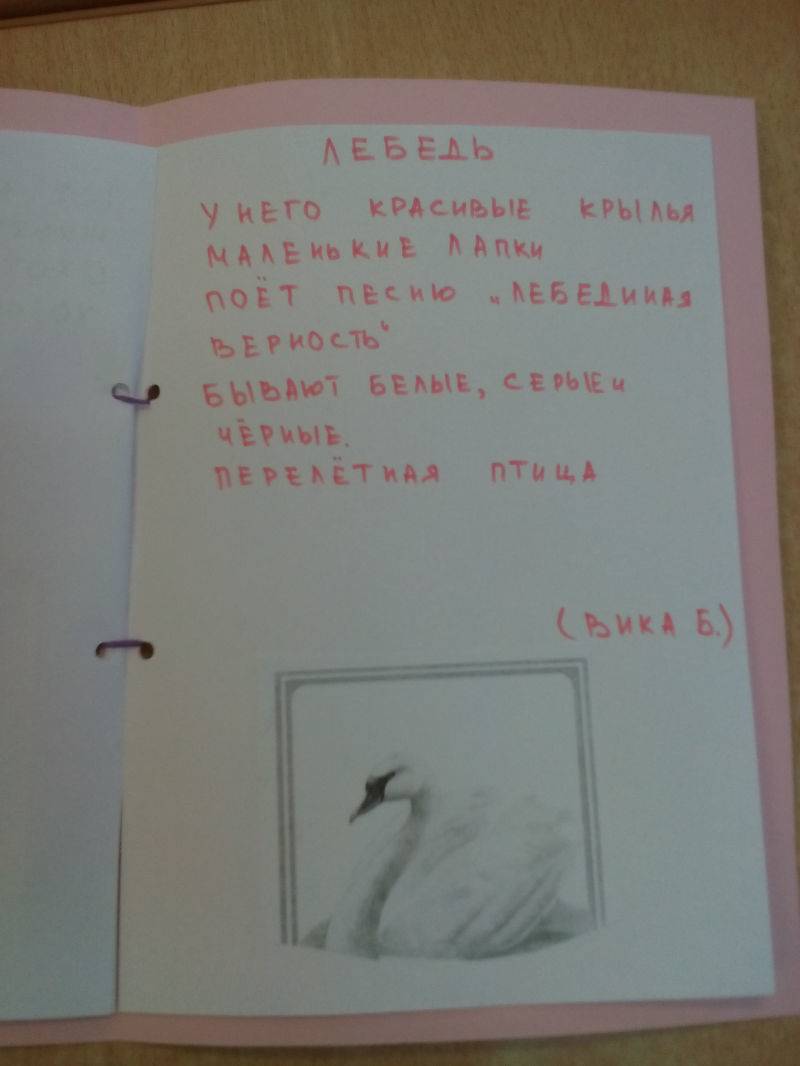 ЛЕБЕДЬ
У НЕГО КРАСИВЫЕ КРЫЛЬЯ
МАЛЕНЬКИЕ ЛАПКИ
ПОЁТ ПЕСНЮ „ЛЕБЕДИНАЯ
ВЕРНОСТЬ“
БЫВАЮТ БЕЛЫЕ, СЕРЫЕ И
ЧЁРНЫЕ.
ПЕРЕЛЁТНАЯ ПТИЦА
(ВИКА Б.)